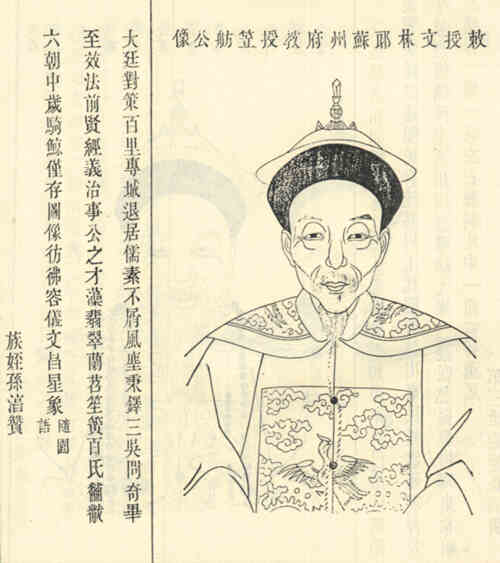 敕授文林郎蘇州府教授笠舫公像
大廷對策百里專城退居儒素不屑風塵秉鐸三吳問奇畢
至效法前賢經義治事公之才藻翡翠蘭苕笙簧百氏黼黻
六朝中歲騎鯨僅存圖像彷彿容儀文昌星象隨園語
族姪孫涪贊